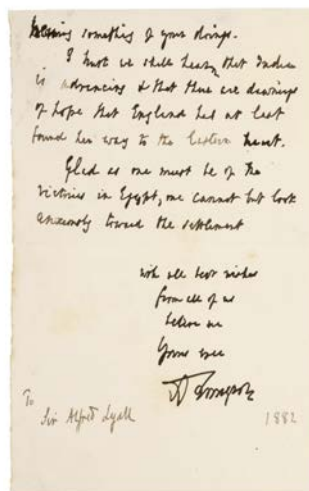 hearing something of your doings.
I trust we shall hear that India
is advancing & that there are dawnings
of hope that England has at last
found her way to the Eastern heart.
Glad as one must be of the
victories in Egypt, one cannot but look
anxiously toward the settlement
with all best wishes
from all of us
believe me
Yours ever
A Tennyson
To
Sir Alfred Lyall
1882